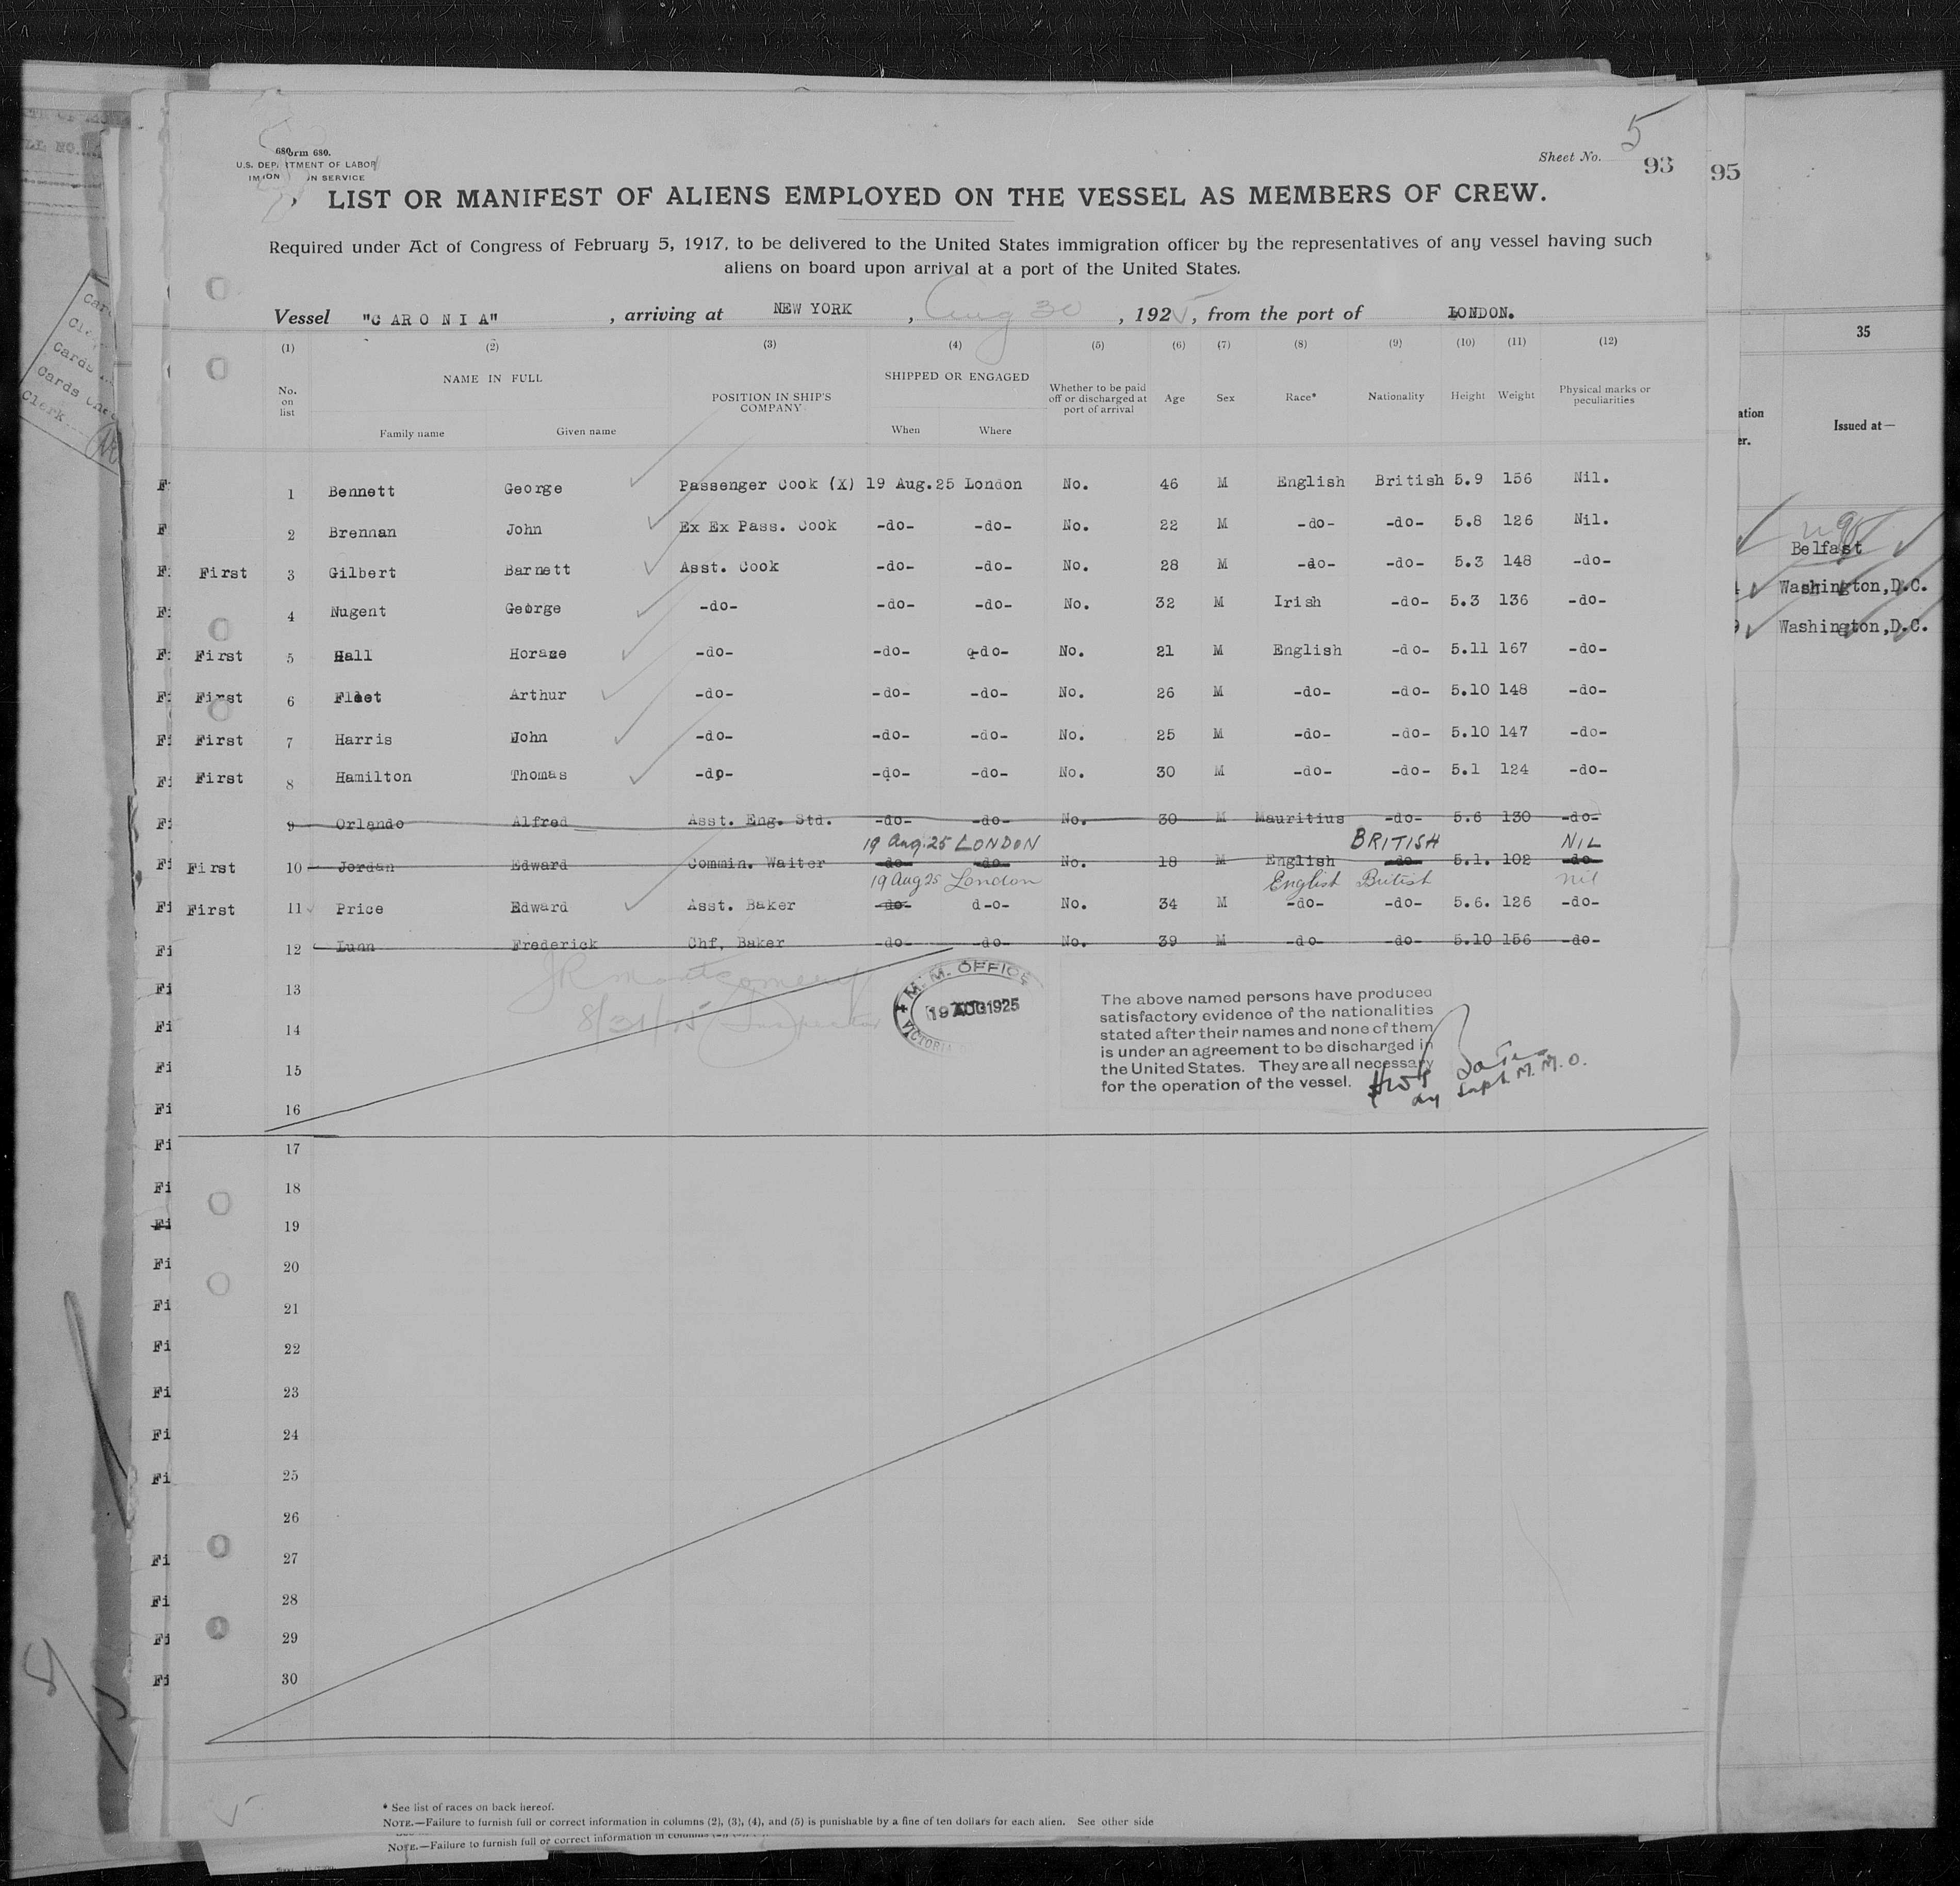 5
Sheet No.
93
95
Form 680.
U.S. DEPARTMENT OF LABOR
LIST OR MANIFEST OF ALIENS EMPLOYED ON THE VESSEL AS MEMBERS OF CREW.
Required under Act of Congress of February 5, 1917, to be delivered to the United States immigration officer by the representatives of any vessel having such
aliens on board upon arrival at a port of the United States.
Vessel "CARONIA", arriving at NEW YORK, Aug 30, 1925, from the port of LONDON.
(1) (2) (3) (4) (5) (6) (7) (8) (9) (10) (11) (12)
No. on list NAME IN FULL POSITION IN SHIP'S COMPANY SHIPPED OR ENGAGED Whether to be paid off or discharged at port of arrival Age Sex Race* Nationality Height Weight Physical marks or peculiarities
Family name Given name When Where
1 Bennett George Passenger Cook (X) 19 Aug.25 London No. 46 M English British 5.9 156 Nil.
2 Brennan John Ex Ex Pass. Cook -do- -do- No. 22 M -do- -do- 5.8 126 Nil.
First 3 Gilbert Barnett Asst. Cook -do- -do- No. 28 M -do- -do- 5.3 148 -do-
4 Nugent George -do- -do- -do- No. 32 M Irish -do- 5.3 136 -do-
First 5 Hall Horace -do- -do- -do- No. 21 M English -do- 5.11 167 -do-
First 6 Fleet Arthur -do- -do- -do- No. 26 M -do- -do- 5.10 148 -do-
First 7 Harris John -do- -do- -do- No. 25 M -do- -do- 5.10 147 -do-
First 8 Hamilton Thomas -do- -do- -do- No. 30 M -do- -do- 5.1 124 -do-
9 Orlando Alfred Asst. Eng. Std. -do- -do- No. 30 M Mauritius -do- 5.6 130 -do-
19 Aug.25 LONDON BRITISH NIL
First 10 Jordan Edward Commin. Waiter -do- -do- No. 18 M English -do- 5.1. 102 -do-
19 Aug 25 London English British nil
First 11 Price Edward Asst. Baker -do- d-o- No. 34 M -do- -do- 5.6. 126 -do-
12 Lunn Frederick Chf, Baker -do- -do- No. 39 M -do- -do- 5.10 156 -do-
13
14
15
16
JR Montgomery
8/31/25 Inspector
M. M. OFFICE
19 AUG 1925
VICTORIA
The above named persons have produced
satisfactory evidence of the nationalities
stated after their names and none of them
is under an agreement to be discharged in
the United States. They are all necessary
for the operation of the vessel.
Supt. M. M. O.
17
18
19
20
21
22
23
24
25
26
27
28
29
30
* See list of races on back hereof.
NOTE.—Failure to furnish full or correct information in columns (2), (3), (4), and (5) is punishable by a fine of ten dollars for each alien. See other side
NOTE.—Failure to furnish full or correct information in columns
35
Issued at—
Belfast
Washington,D.C.
Washington,D.C.
Cards
Cards
Clerk